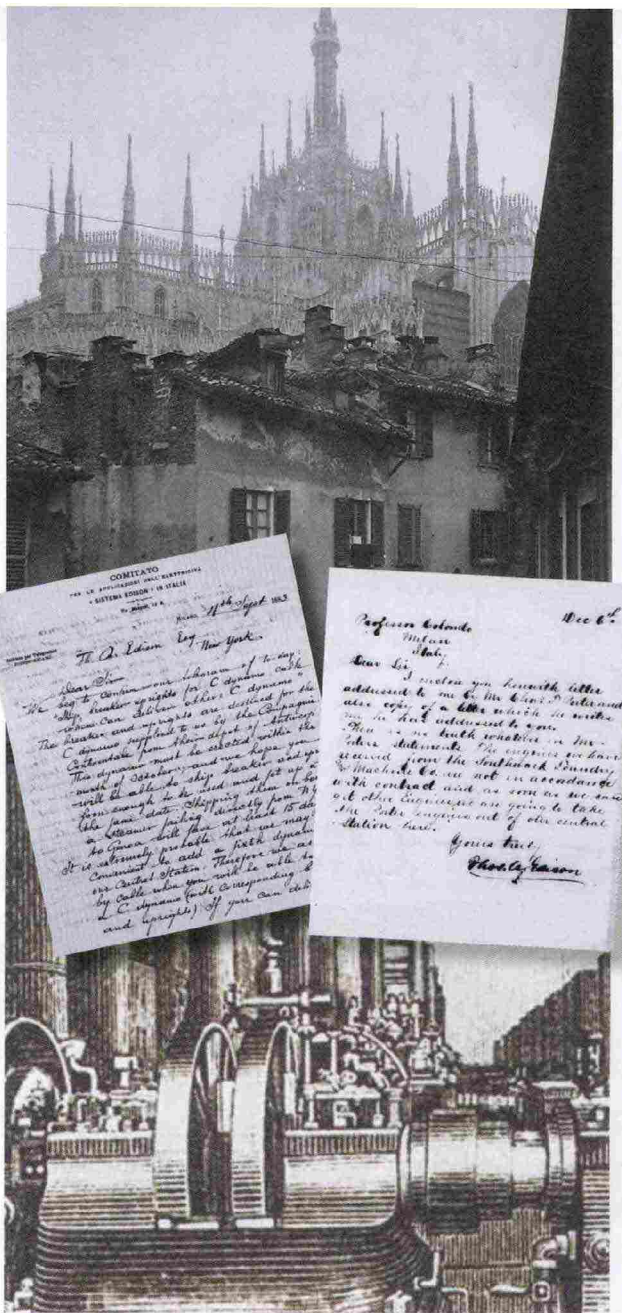 COMITATO
PER LE APPLICAZIONI DELL'ELETTRICITÀ
SISTEMA EDISON IN ITALIA
Milano, 11th Sept 188
Th. A. Edison Esq
New York
Dear Sir
We beg to confirm our of to day:
"Ship breaker uprights for C dynamo cable
when can deliver other C dynamo"
The breaker and uprights are destined for the
C dynamo supplied to us by the Compagnie
Continentale from their depot of Antwerp
This dynamo must be erected within the
month of October, and we hope you
will be able to ship breaker and
soon enough to be used and put up at
the same date. Shipping them on board
a Steamer sailing directly from N.Y.
to Genoa will save at least 15 days
It is extremely probable that we may
convenient to add a sixth dynamo
our Central Station Therefore we ask
by cable when you will be able to
a C dynamo (with corresponding
and uprights) If you can
Professor Colombo
Milan
Italy
Dec 6th
Dear Sir
I enclose you herewith letter
addressed to me by Mr Chas T Porter and
also copy of a letter which he writes
me he has addressed to you.
There is no truth whatever in Mr
Porters statements. The engines we have
received from the Southwark Foundry
& Machine Co. are not in accordance
with contract and as soon as we can
get other Engines we are going to take
the Porter Engines out of our central
Station here.
Yours truly
Thos. A. Edison